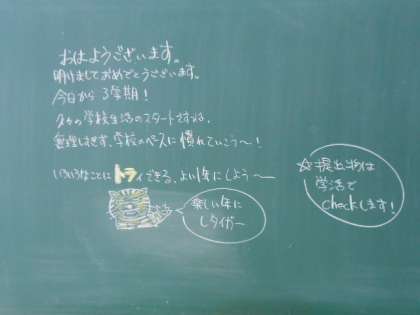 おはようございます。
明けましておめでとうございます。
今日から3学期！
学校生活のスタートですね。
無理しすぎず、学校のペースに慣れていこう〜！
いろいろなことにトライできる、よい1年にしよう〜
楽しい年に
しタイガー
☆提出物は
学活で
checkします！